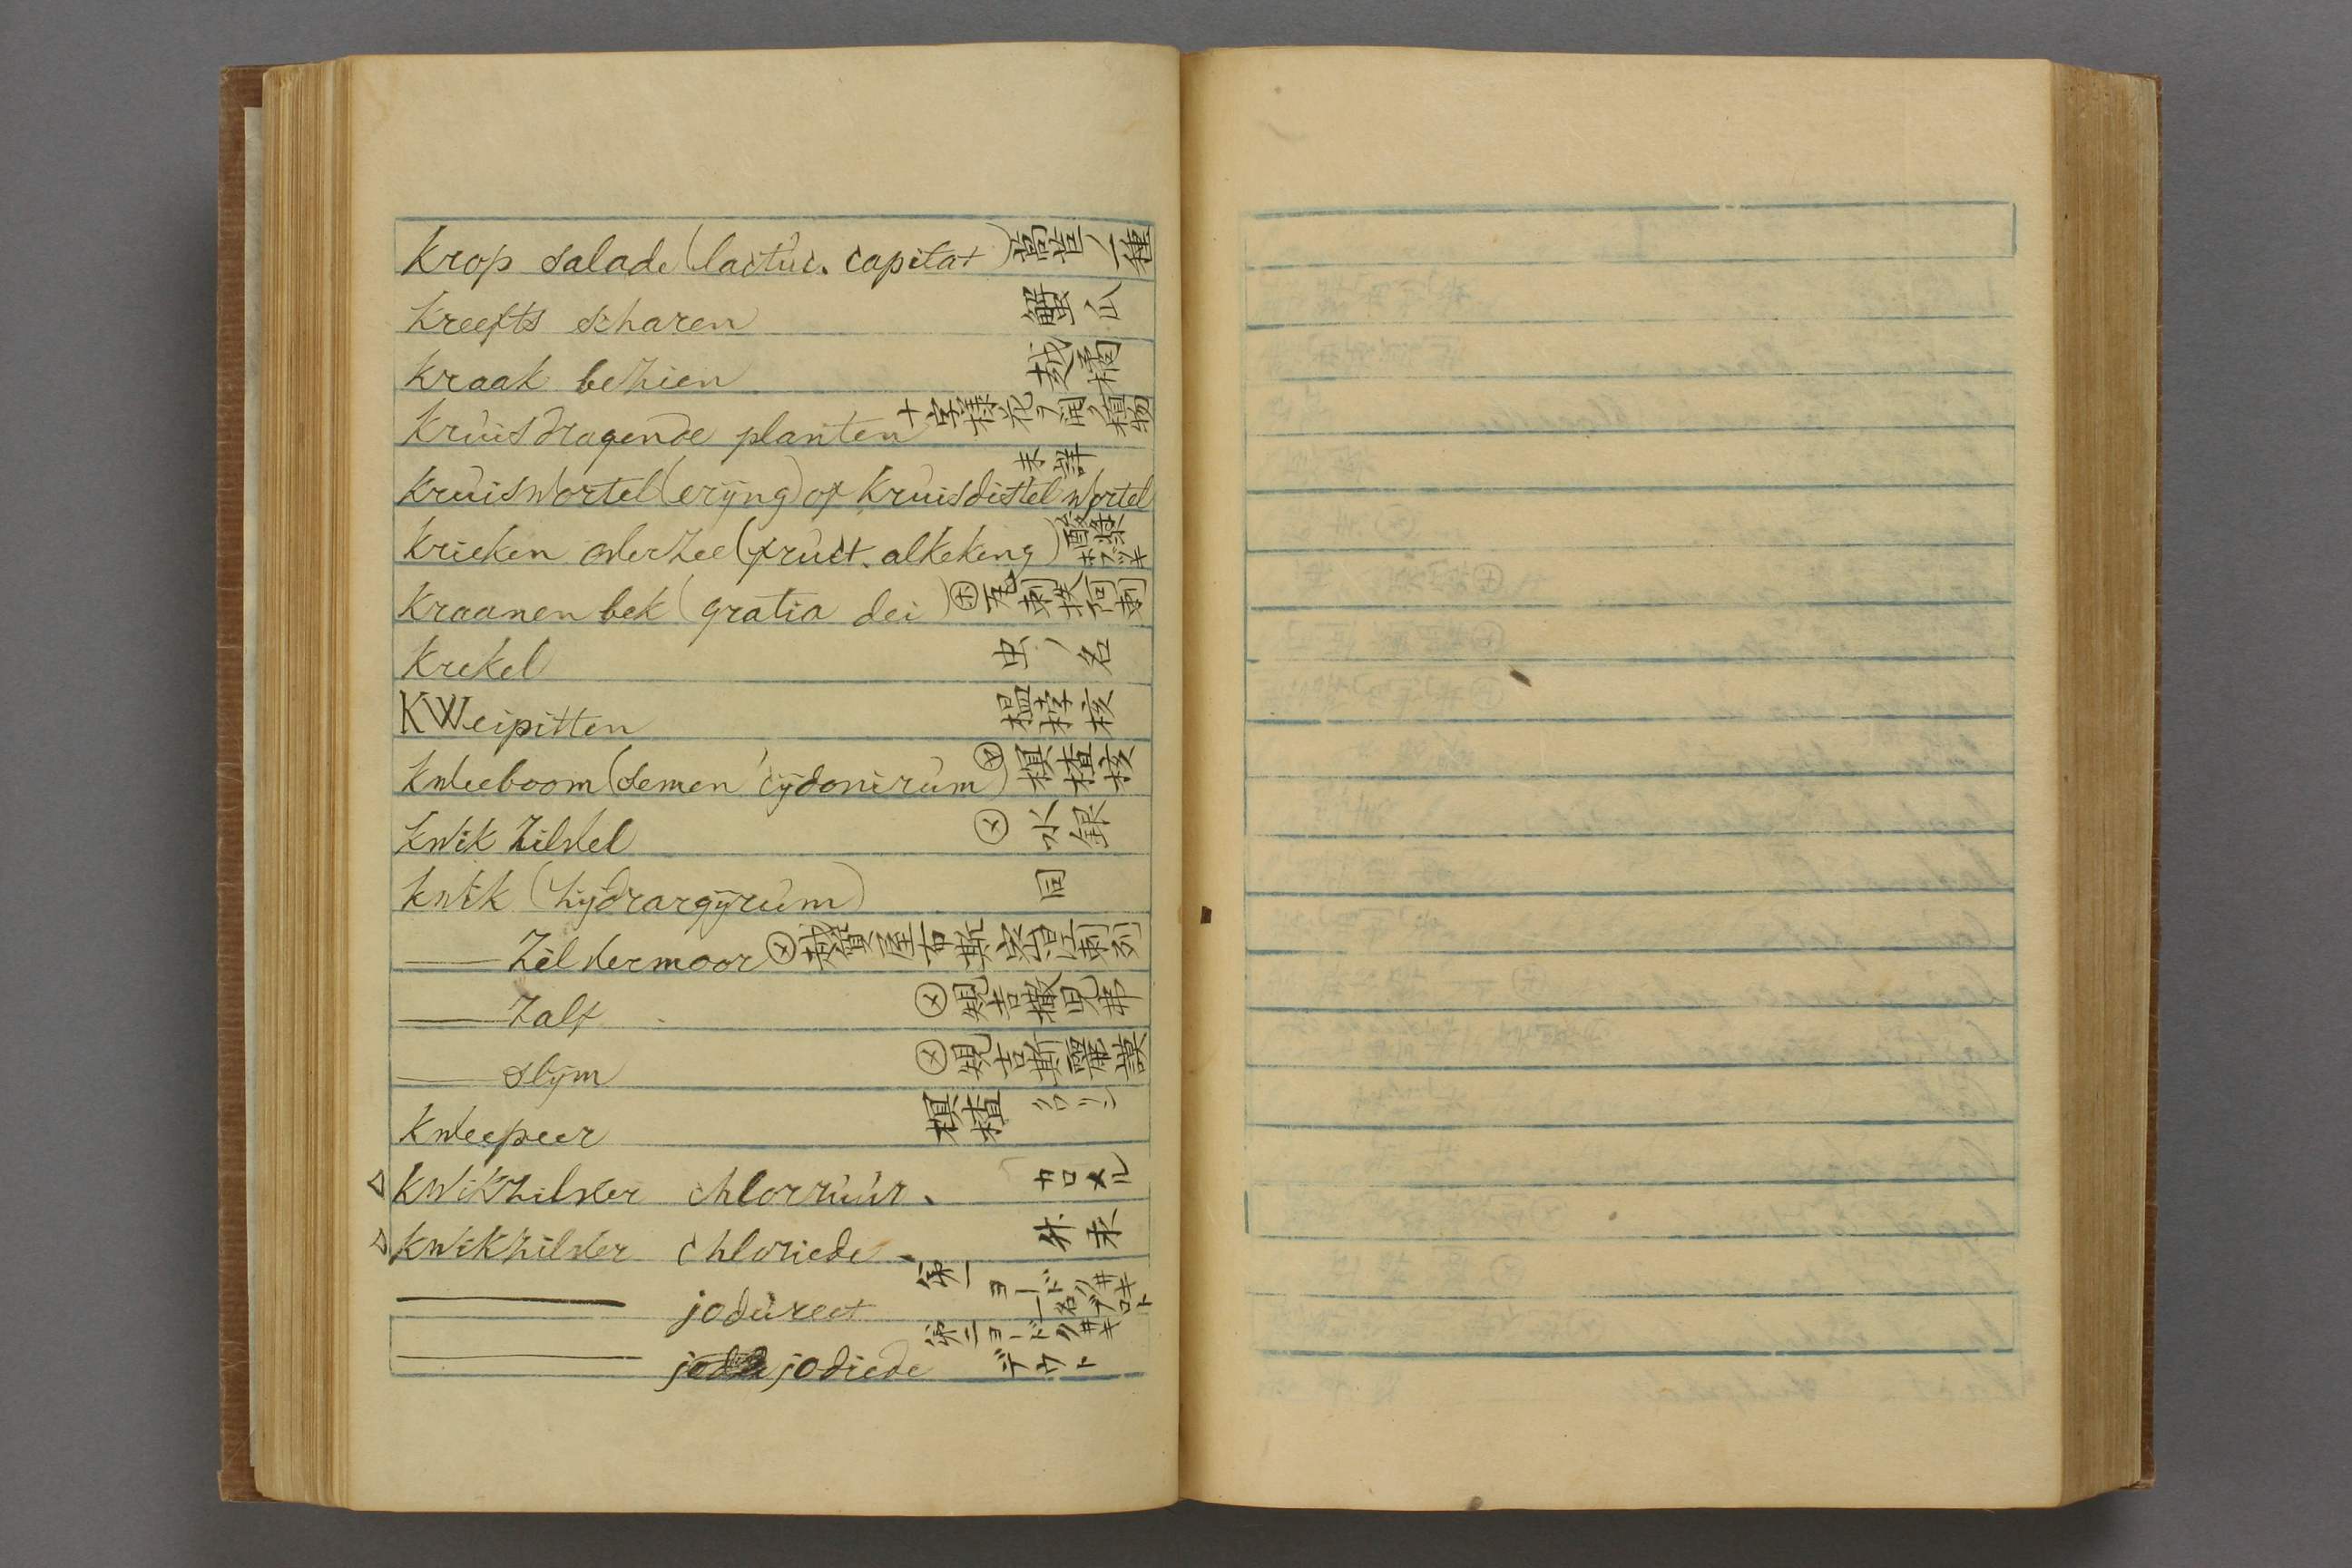 Krop salade (lactuc. capitat) 萵苣ノ一種
Kreefts scharen 蟹爪
Kraak bezien 越橘
Kruisdragende planten 十字様花ヲ開ク植物
未詳
Kruiswortel (erÿng) of Kruisdistel wortel
Krieken over Zee (fruct. alkekeng) 酸漿 ホフヅキ
Kraanen bek (gratia dei) 刺 阿刺
Krekel 虫ノ名
KWeipitten 榲桲核
Kweeboom (semen cÿdonirum) 榠樝核
Kwik Zilvel 水銀
Kwik (hÿdrargÿrum) 同
—— Zilvermoor
—— Zalf 規吉撒兒弗
—— slÿm 規吉斯 謨
Kweepeer 榠樝
△ Kwikzilver chlorruur. カロメル
△ Kwikzilver chloriede. 升汞
—— joduret 第一ヨード
—— jodiede 第二ヨード